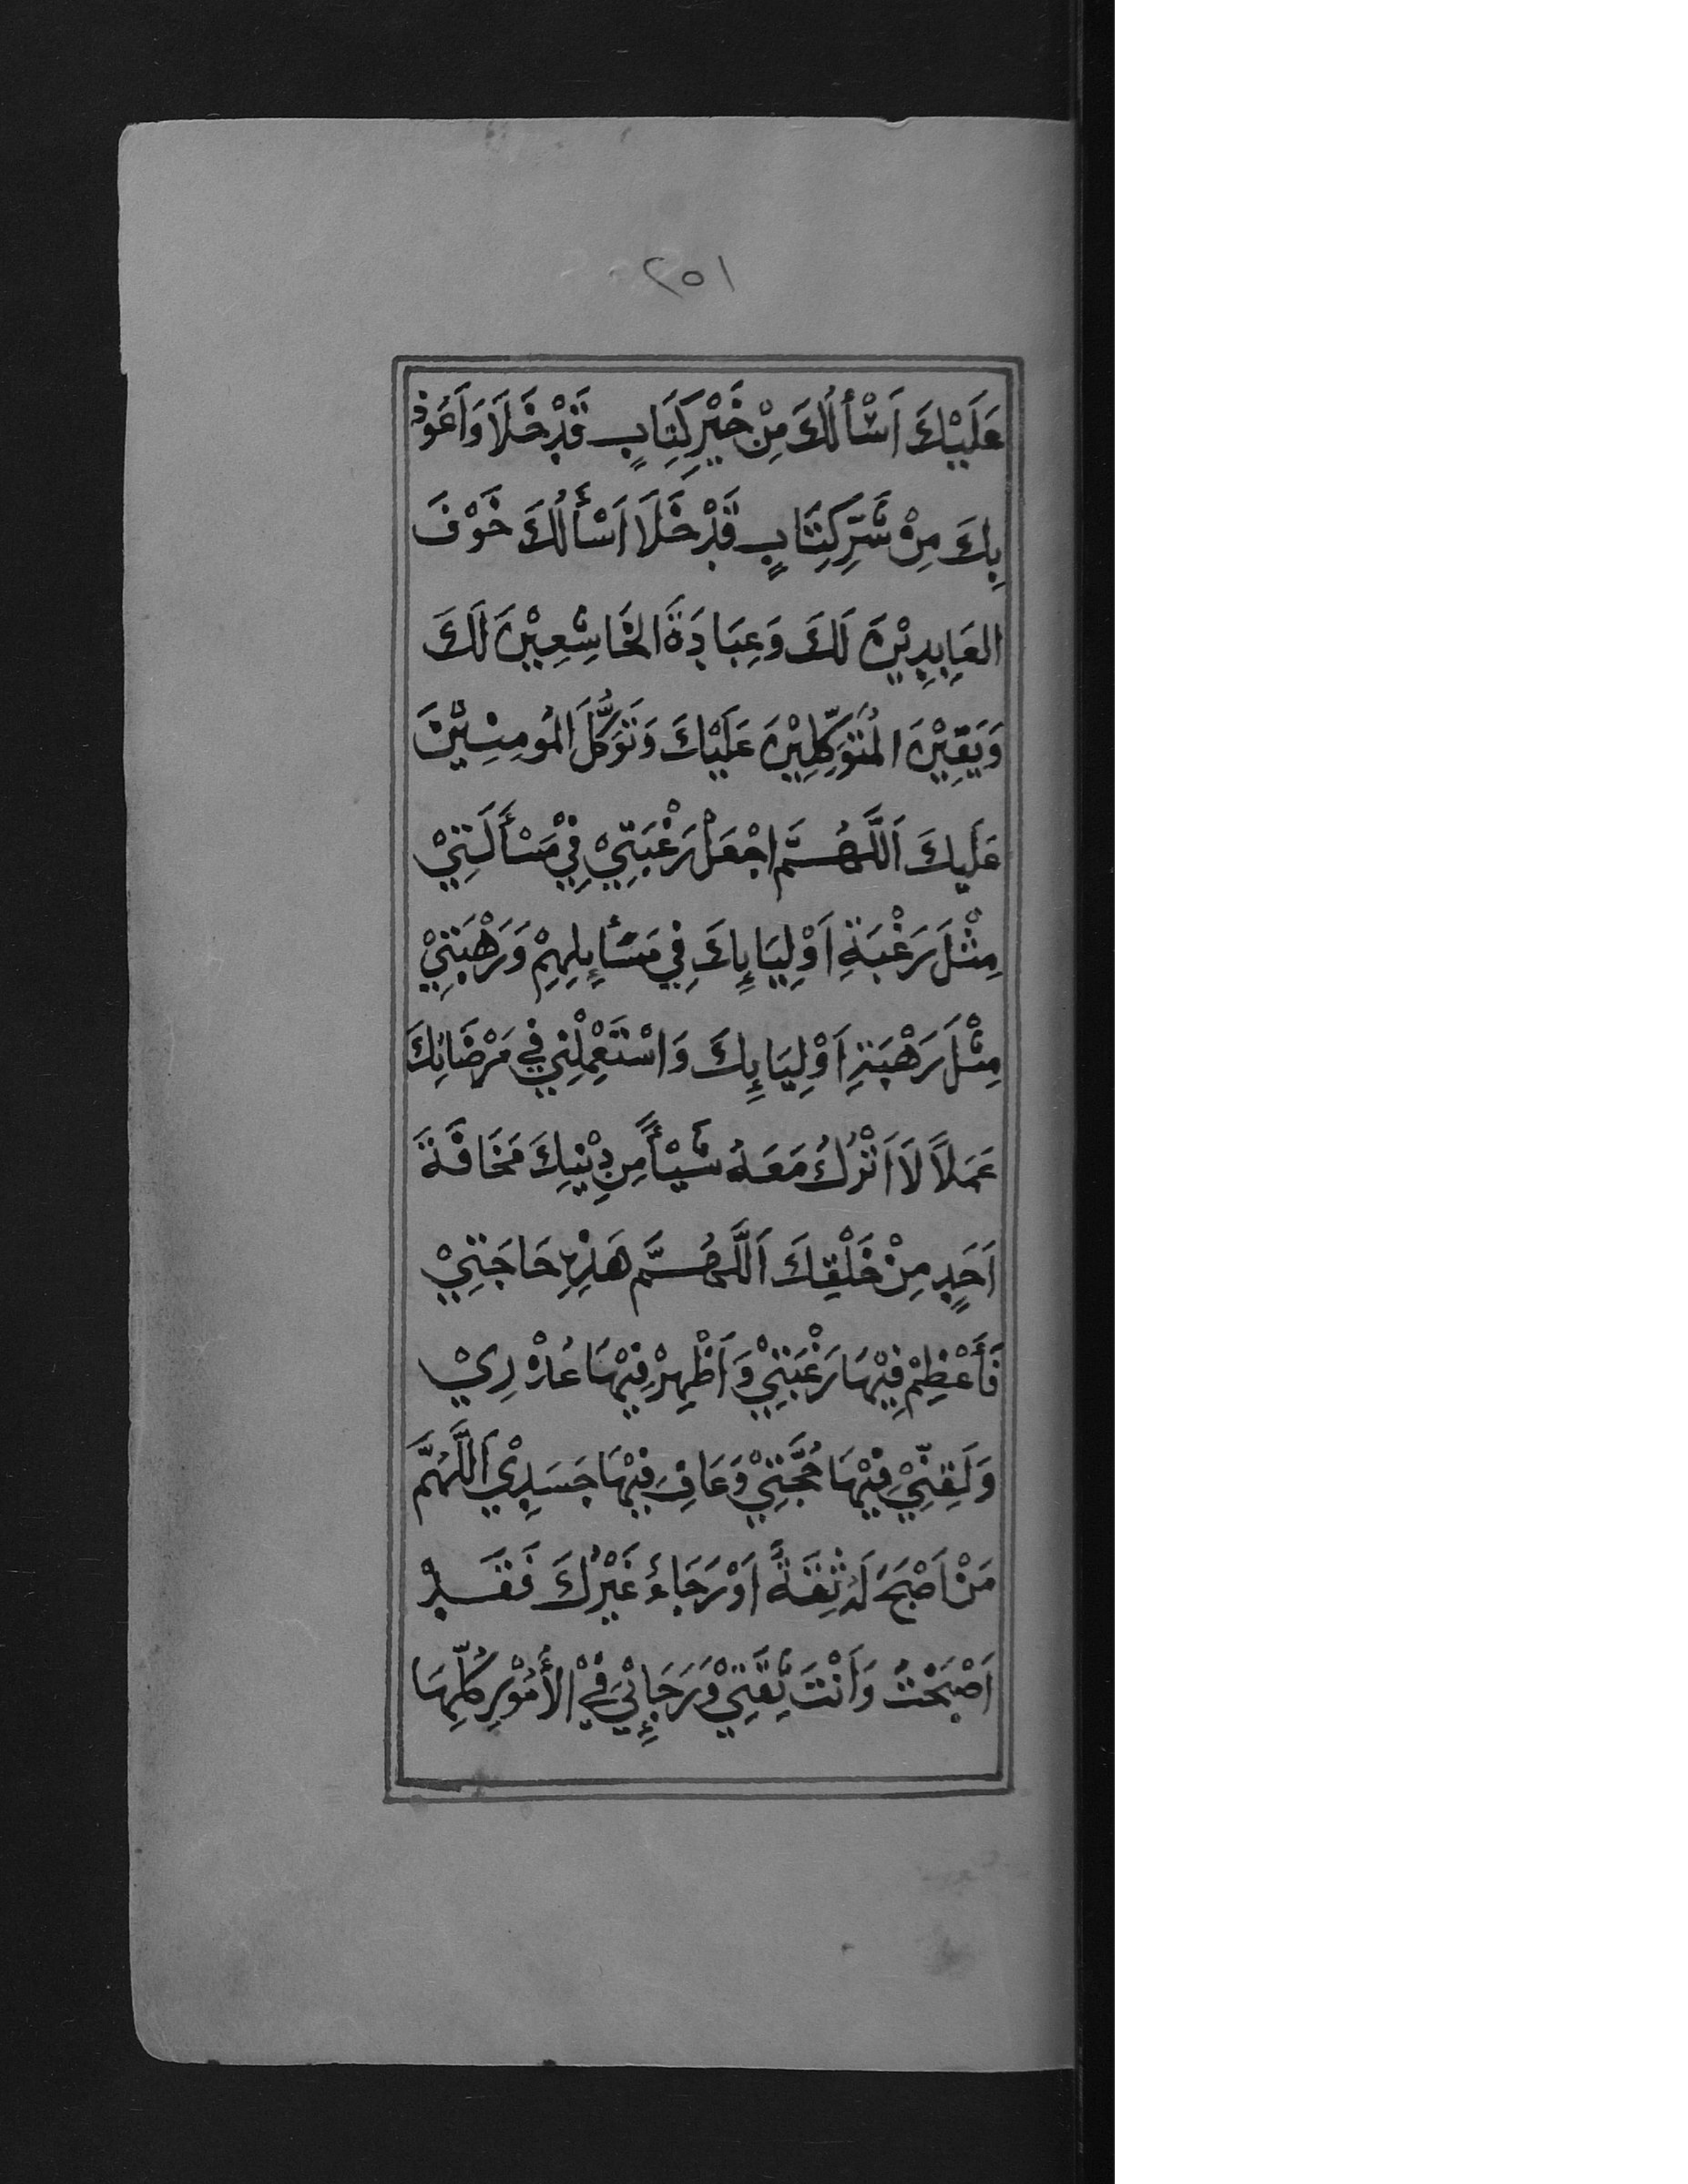 ٢٥١
عَلَيْكَ اَسْأَلُكَ مِنْ خَيْرِ كِتَابٍ قَدْ خَلَا وَاَعُوذُ
بِكَ مِنْ شَرِّ كِتَابٍ قَدْ خَلَا اَسْأَلُكَ خَوْفَ
العَابِدِيْنَ لَكَ وَعِبَادَةَ الخَاشِعِيْنَ لَكَ
وَيَقِيْنَ المُتَوَكِّلِيْنَ عَلَيْكَ وَتَوَكُّلَ المُومِنِيْنَ
عَلَيكَ اَللَّهُمَّ اجْعَلْ رَغْبَتِيْ فِيْ مَسْأَلَتِيْ
مِثْلَ رَغْبَةِ اَوْلِيَايِٕكَ فِي مَسَأيِٕلِهِمْ وَرَهْبَتِيْ
مِثْلَ رَهْبَةِ اَوْلِيَايِٕكَ وَاسْتَعْمِلْنِي فِي مَرْضَاتِكَ
عَمَلاً لَا اَتْرُكُ مَعَهُ شَيْأً مِن دِيْنِكَ مَخَافَةَ
اَحَدٍ مِنْ خَلْقِكَ اَللَّهُمَّ هَذِهِ حَاجَتِيْ
فَأَعْظِمْ فِيْهَا رَغْبَتِيْ وَاَظْهِرْ فِيْهَا عُذْرِيْ
وَلَقِّنِّيْ فِيْهَا حُجَّتِيْ وَعَافِ فِيْهَا جَسَدِيْ اَللَّهُمَّ
مَنْ اَصْبَحَ لَهُ ثِقَةٌ اَوْ رَجَاءُ غَيْرُكَ فَقَدْ
اَصْبَحْتُ وَاَنْتَ ثِقَتِيْ وَرَجَايِٕيْ فِيْ الأُمُوْرِ كُلِّهَا